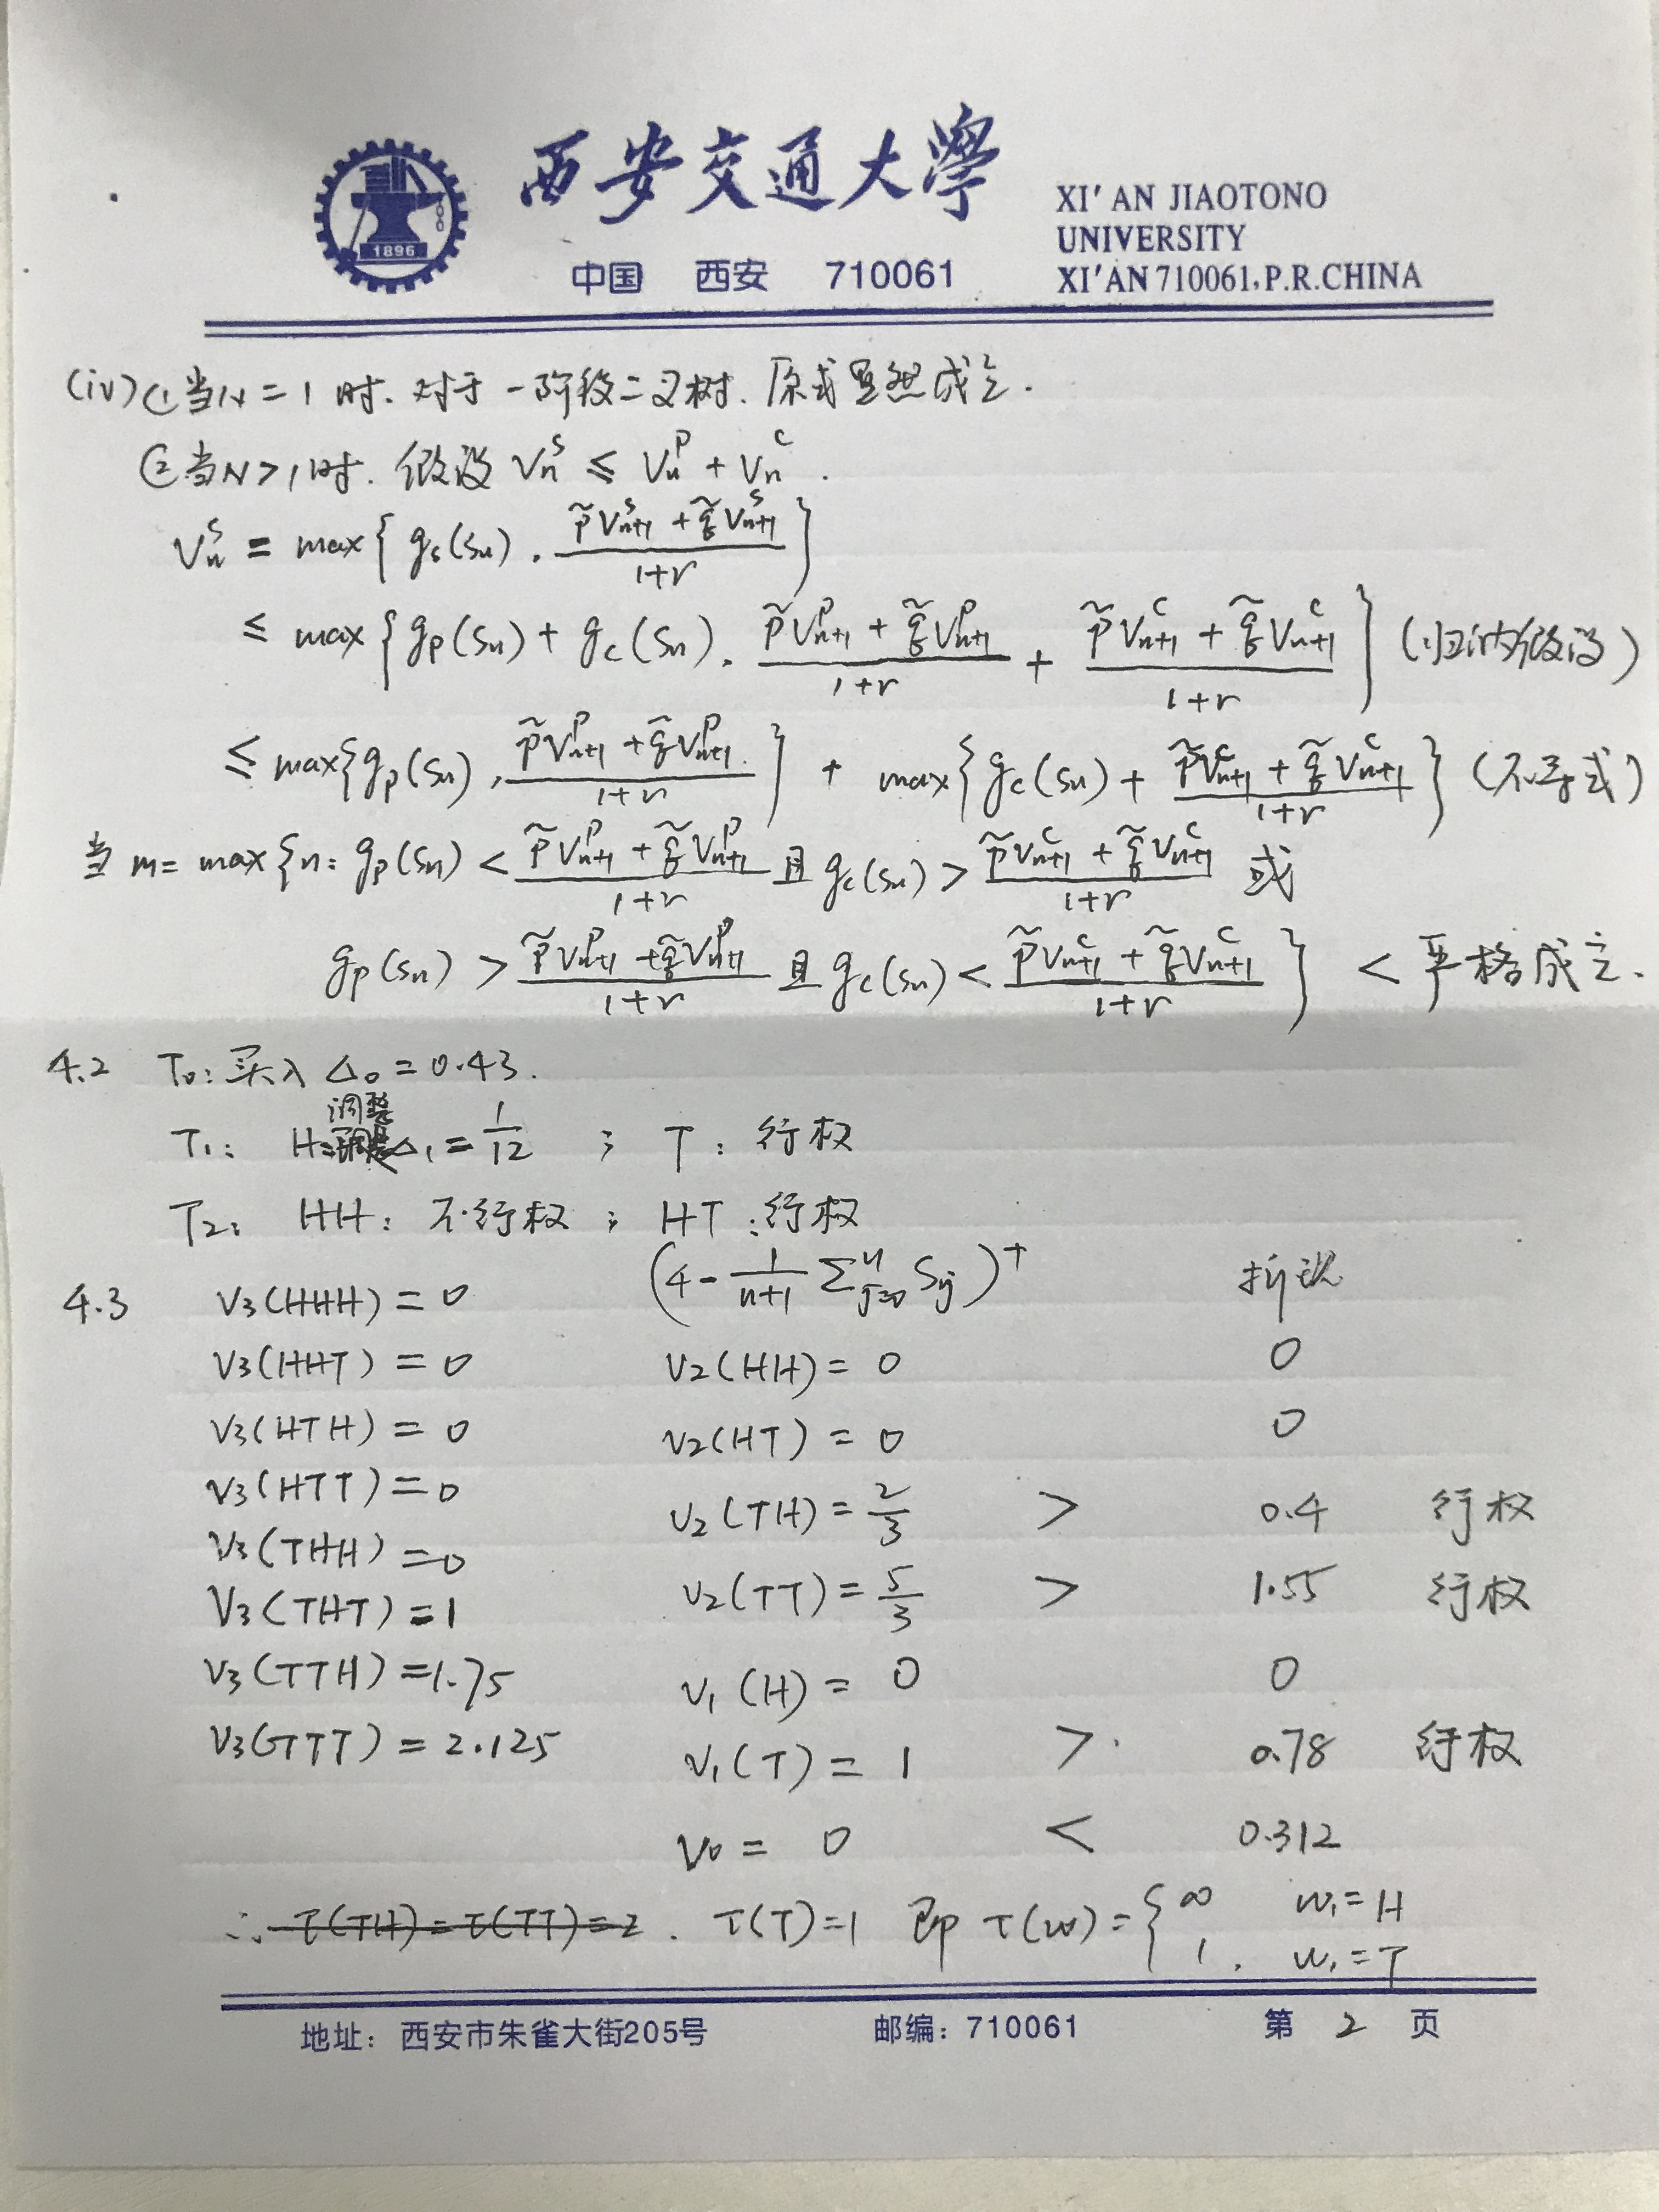 西安交通大學
中国 西安 710061
XI'AN JIAOTONO
UNIVERSITY
XI'AN 710061,P.R.CHINA
1896
(iv) ① 当N=1时. 对于一阶段二叉树. 原式显然成立.
② 当N>1时. 假设 Vₙˢ ≤ Vₙᴾ + Vₙᶜ.
Vₙˢ = max{ gₛ(Sₙ), (p̃Vₙ₊₁ˢ + q̃Vₙ₊₁ˢ)/(1+r) }
≤ max{ gₚ(Sₙ) + g_c(Sₙ), (p̃Vₙ₊₁ᴾ + q̃Vₙ₊₁ᴾ)/(1+r) + (p̃Vₙ₊₁ᶜ + q̃Vₙ₊₁ᶜ)/(1+r) } (归纳假设)
≤ max{ gₚ(Sₙ), (p̃Vₙ₊₁ᴾ + q̃Vₙ₊₁ᴾ)/(1+r) } + max{ g_c(Sₙ) + (p̃Vₙ₊₁ᶜ + q̃Vₙ₊₁ᶜ)/(1+r) } (不等式)
当 m = max{ n: gₚ(Sₙ) < (p̃Vₙ₊₁ᴾ + q̃Vₙ₊₁ᴾ)/(1+r) 且 g_c(Sₙ) > (p̃Vₙ₊₁ᶜ + q̃Vₙ₊₁ᶜ)/(1+r) 或
gₚ(Sₙ) > (p̃Vₙ₊₁ᴾ + q̃Vₙ₊₁ᴾ)/(1+r) 且 g_c(Sₙ) < (p̃Vₙ₊₁ᶜ + q̃Vₙ₊₁ᶜ)/(1+r) } < 严格成立.
4.2 T₀: 买入 Δ₀ = 0.43.
T₁: H: 调整 Δ₁ = 1/12 ; T: 行权
T₂: HH: 不行权 ; HT: 行权
4.3 V₃(HHH) = 0 (4 - 1/(n+1) Σⁿⱼ₌₀ Sⱼ)⁺ 折现
V₃(HHT) = 0 V₂(HH) = 0 0
V₃(HTH) = 0 V₂(HT) = 0 0
V₃(HTT) = 0 V₂(TH) = 2/3 > 0.4 行权
V₃(THH) = 0
V₃(THT) = 1 V₂(TT) = 5/3 > 1.55 行权
V₃(TTH) = 1.75 V₁(H) = 0 0
V₃(TTT) = 2.125 V₁(T) = 1 > 0.78 行权
V₀ = 0 < 0.312
∴ τ(TH) = τ(TT) = 2. τ(T) = 1 即 τ(w) = { ∞ w₁ = H
1, w₁ = T
地址：西安市朱雀大街205号 邮编：710061 第 2 页